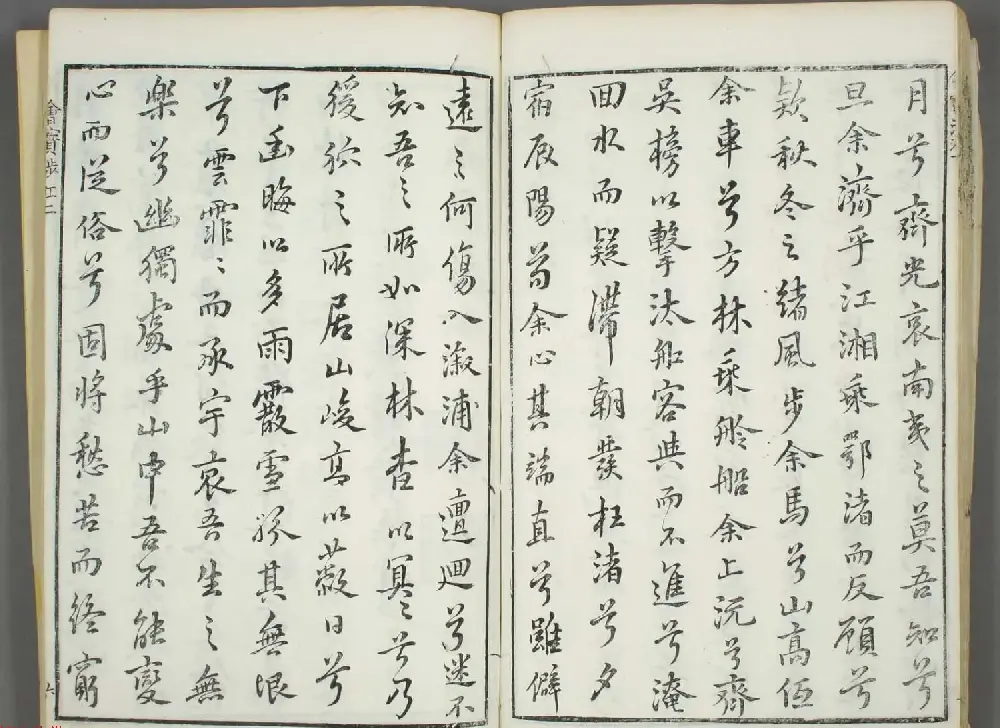 月兮齊光哀南夷之莫吾知兮
旦余濟乎江湘乘鄂渚而反顧兮
欵秋冬之緒風步余馬兮山高低
余車兮方林乘舲船余上沅兮齊
吳榜以擊汰船容與而不進兮淹
回水而疑滯朝發枉渚兮夕
宿辰陽苟余心其端直兮雖僻
遠之何傷入溆浦余邅迴兮迷不
知吾之所如深林杳以冥〻兮乃
猨狖之所居山峻高以蔽日兮
下幽晦以多雨霰雪紛其無垠
兮雲霏〻而承宇哀吾生之無
樂兮幽獨處乎山中吾不能變
心而從俗兮固將愁苦而終窮
六